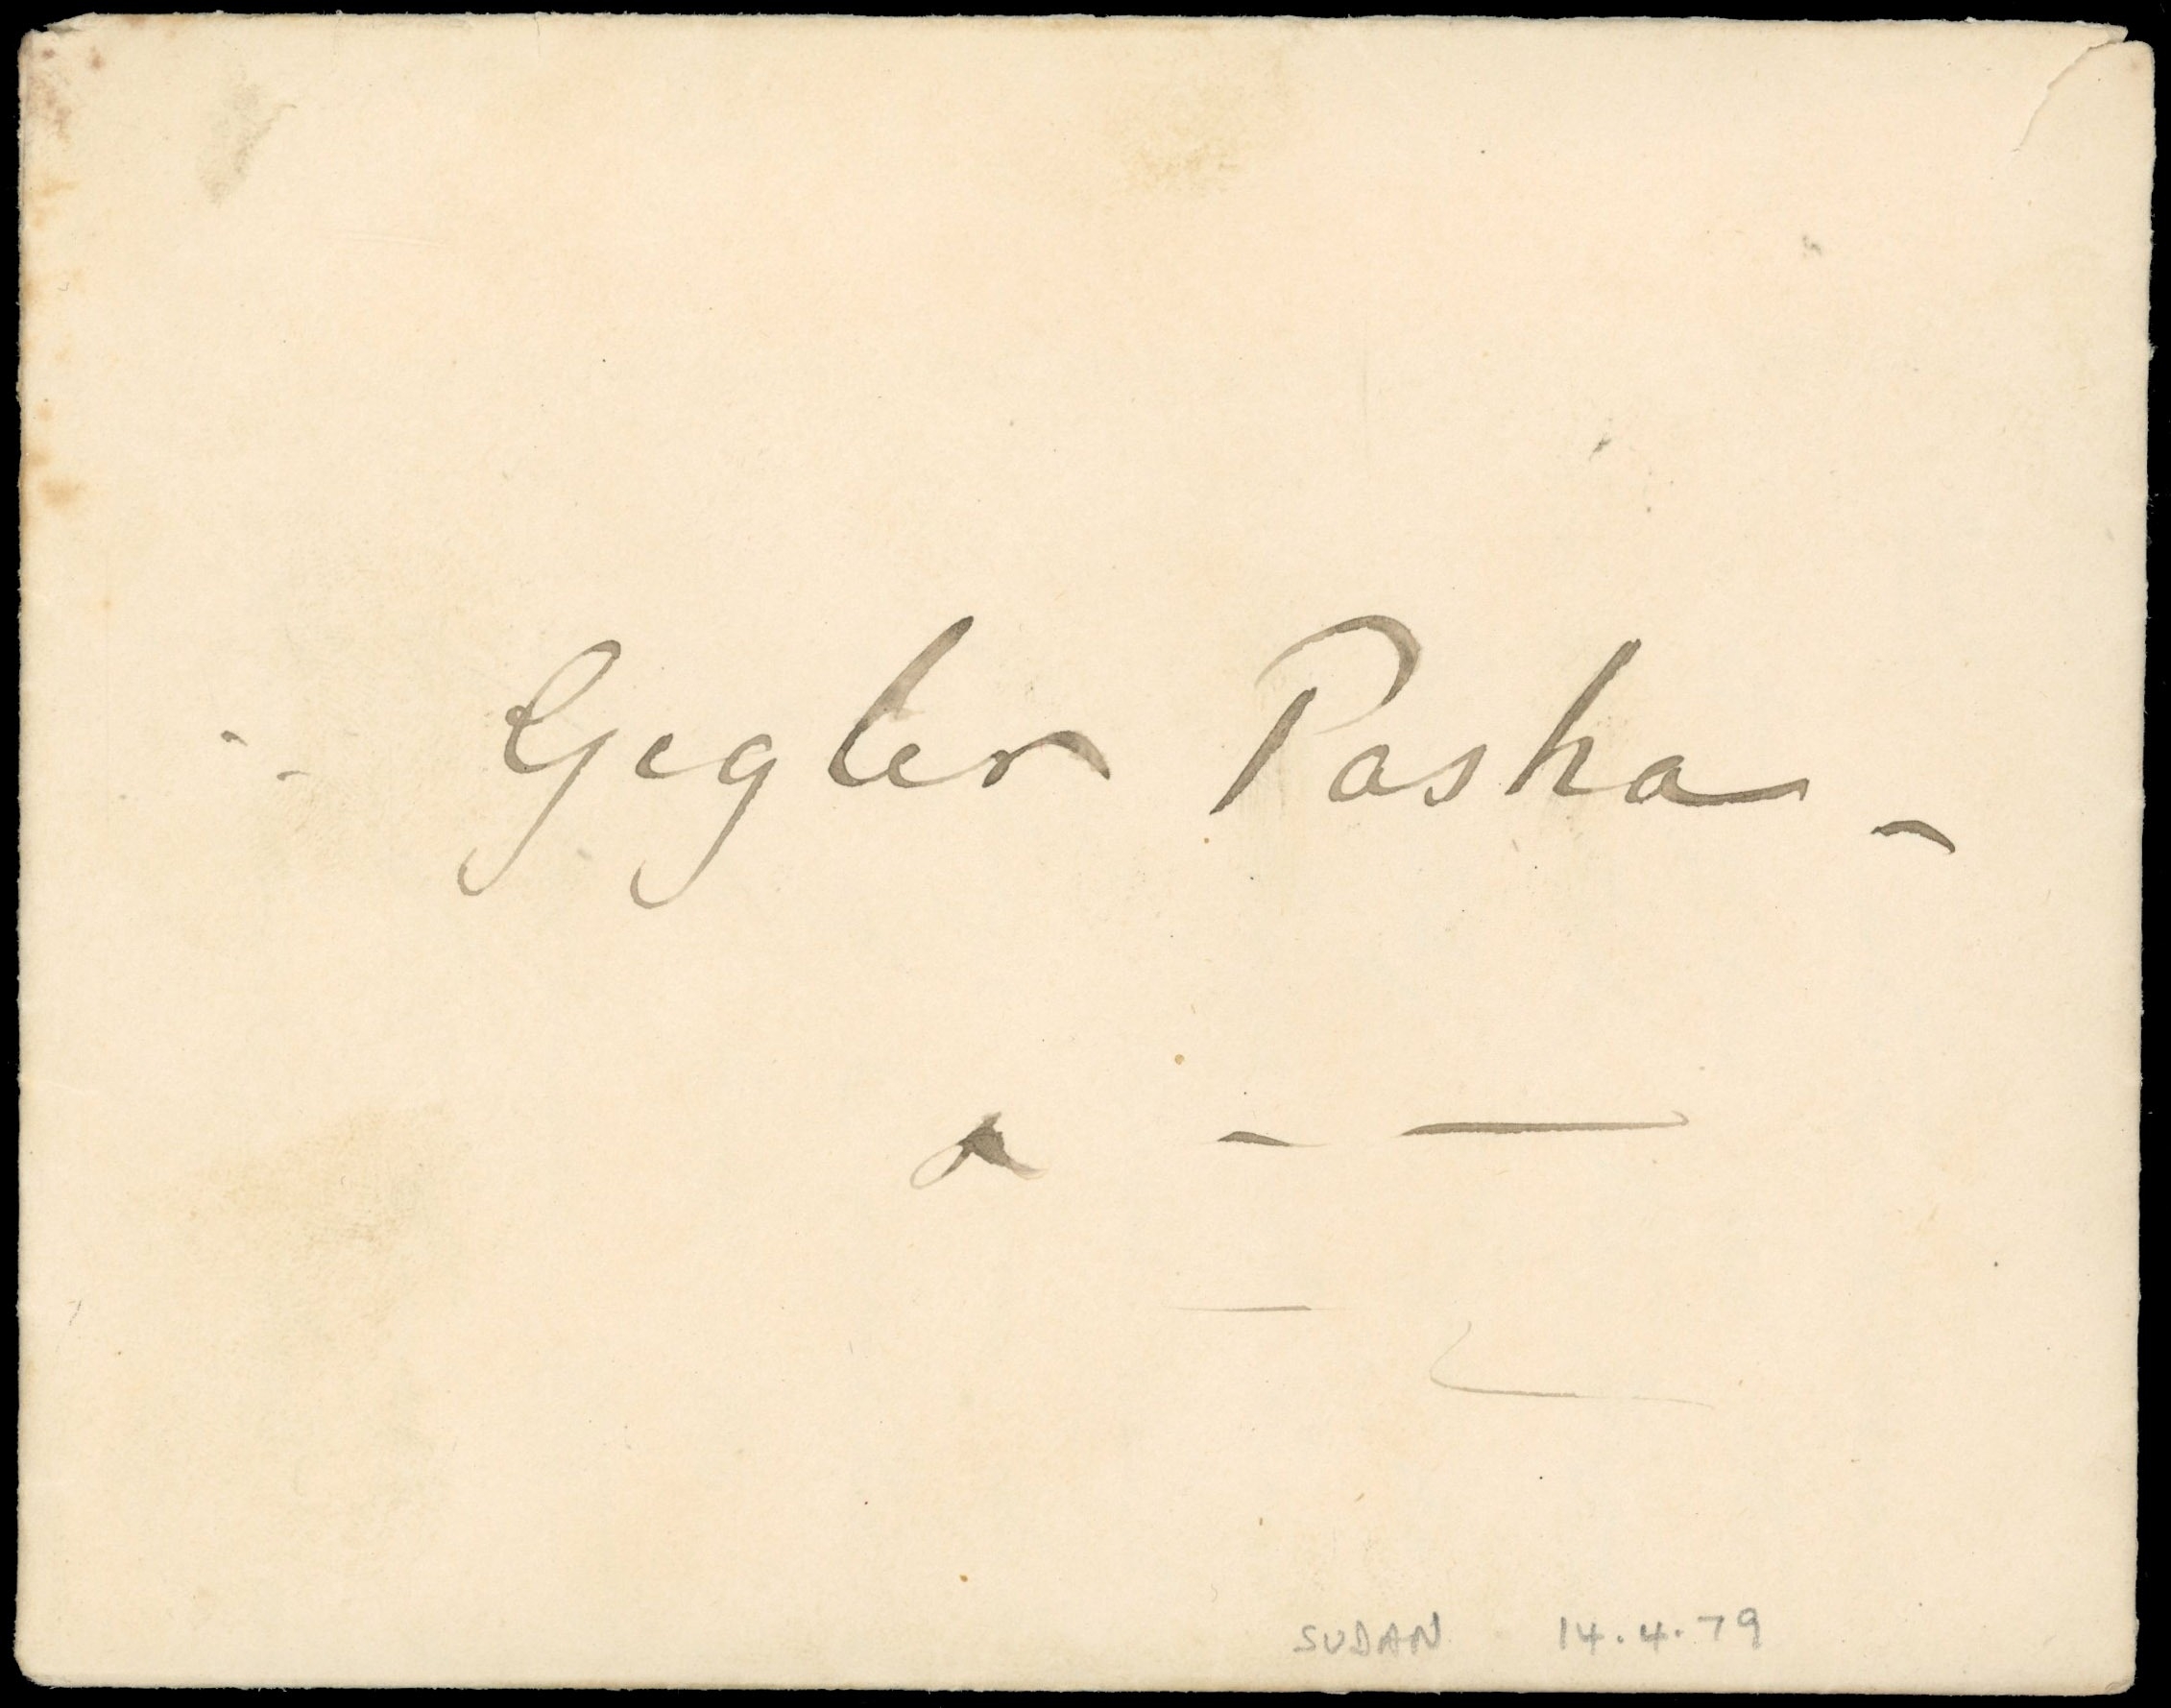 Gegler Pasha
SUDAN 14.4.79